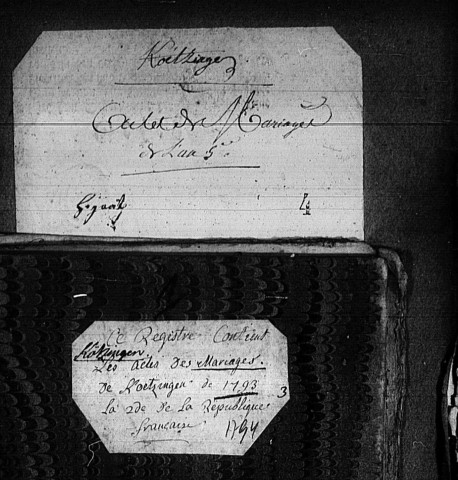 Koëtzingen
Actes de Mariages
de L'an 5e
4
Ce Registre Contient
Kötzingen
Les actes Des Mariages.
De Koetzingen de 1793
3
La 2de De La Republique
francaise 1794